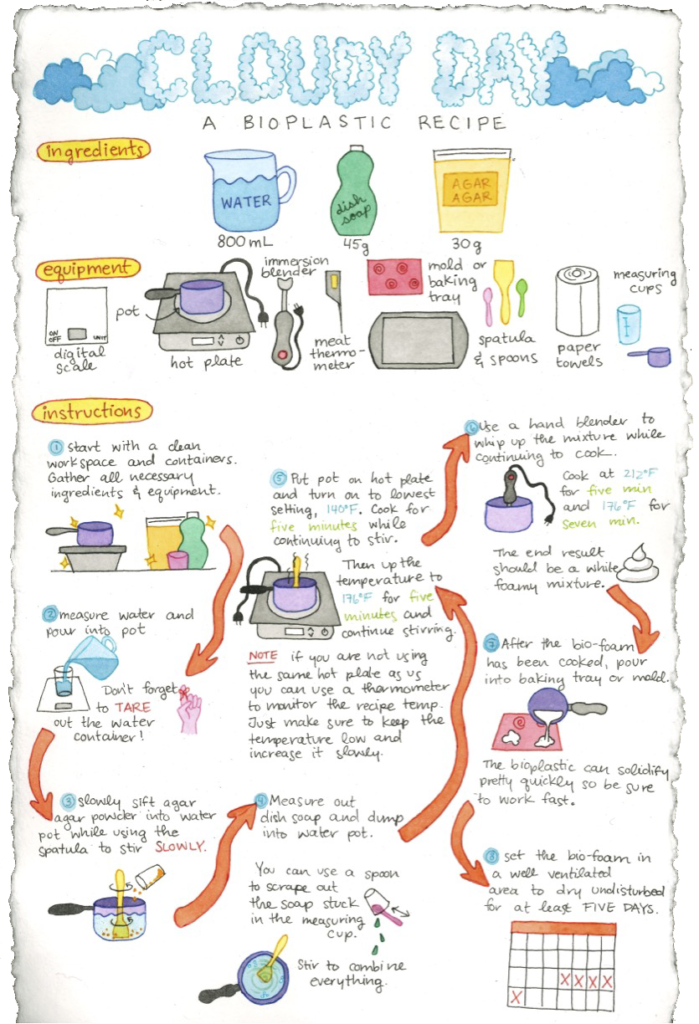 CLOUDY DAY
A BIOPLASTIC RECIPE
ingredients
WATER
800 mL
dish
soap
45g
AGAR
AGAR
30g
equipment
ON
OFF
UNIT
digital
scale
pot
hot plate
immersion
blender
meat
thermo-
meter
mold or
baking
tray
spatula
& spoons
paper
towels
measuring
cups
instructions
1 Start with a clean
workspace and containers.
Gather all necessary
ingredients & equipment.
2 measure water and
pour into pot
Don't forget
to TARE
out the water
container!
3 Slowly sift agar
agar powder into water
pot while using the
spatula to stir SLOWLY.
4 Measure out
dish soap and dump
into water pot.
You can use a spoon
to scrape out
the soap stuck
in the measuring
cup.
Stir to combine
everything.
5 Put pot on hot plate
and turn on to lowest
setting, 140°F. Cook for
five minutes while
continuing to stir.
Then up the
temperature to
176°F for five
minutes and
continue stirring.
NOTE if you are not using
the same hot plate as us
you can use a thermometer
to monitor the recipe temp.
Just make sure to keep the
temperature low and
increase it slowly.
6 Use a hand blender to
whip up the mixture while
continuing to cook.
Cook at 212°F
for five min
and 176°F for
seven min.
The end result
should be a white
foamy mixture.
7 After the bio-foam
has been cooked, pour
into baking tray or mold.
The bioplastic can solidify
pretty quickly so be sure
to work fast.
8 set the bio-foam in
a well ventilated
area to dry undisturbed
for at least FIVE DAYS.
X X X X
X